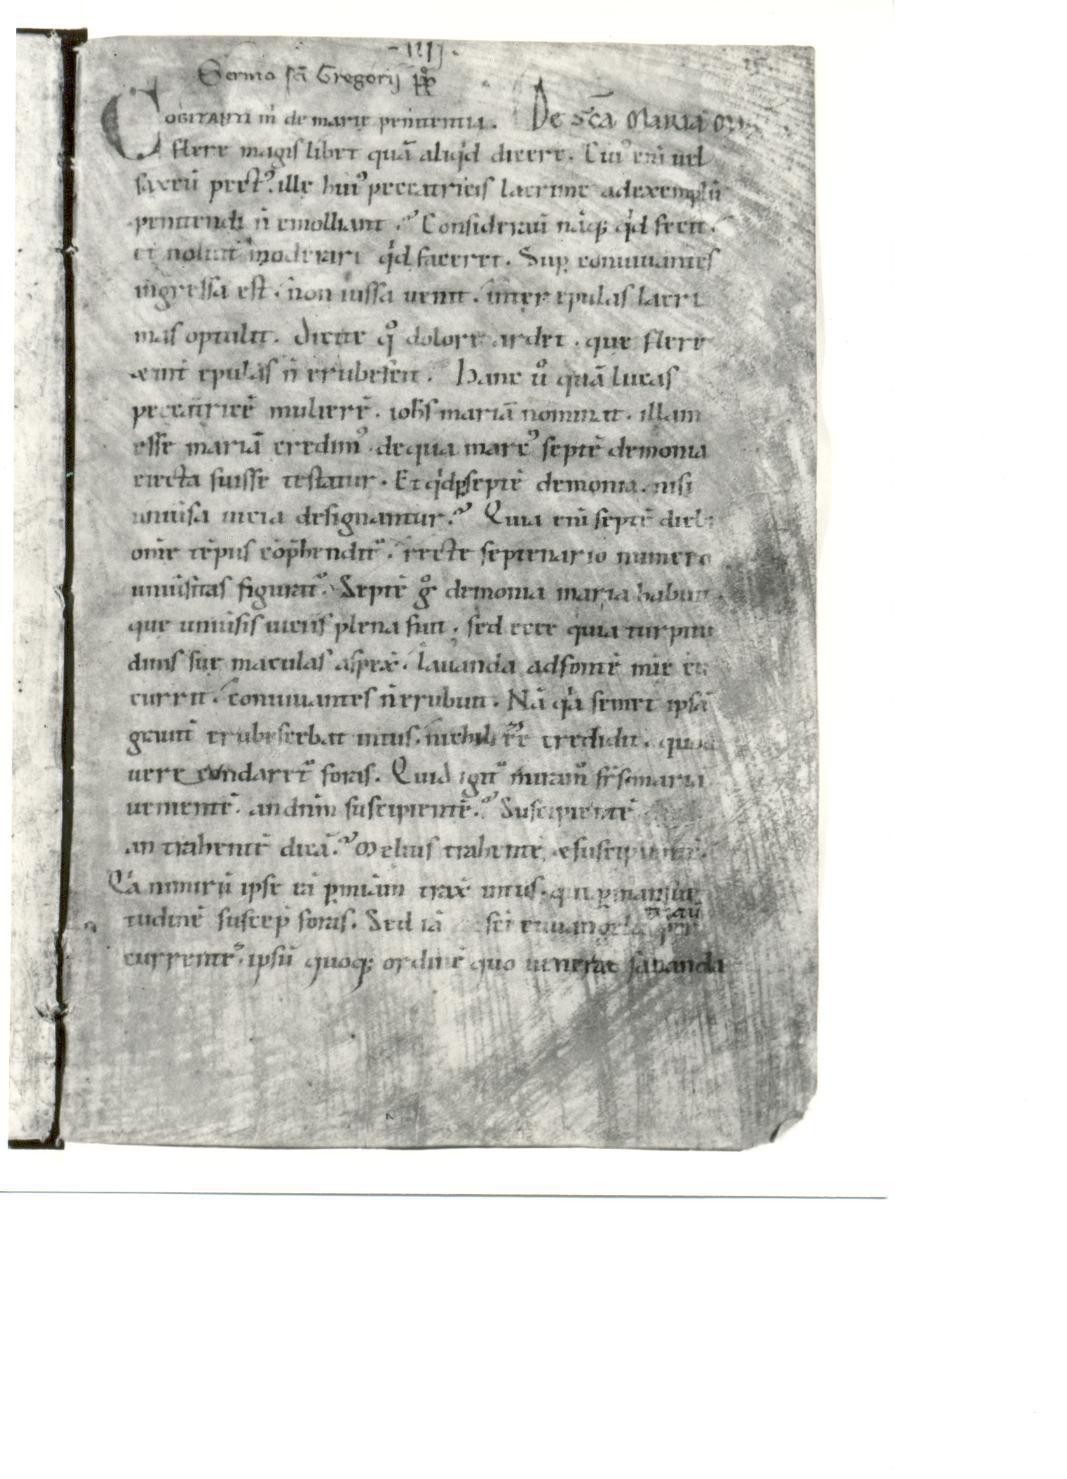 - IIIJ.
Sermo scī Gregorij pp
COGITANTI m̄ de marie penitentia. De sc̄a Maria
flere magis libet quā aliqⁱd dicere. Cui᷒ eni uel
saxeū pect᷒ ille hui᷒ peccatricis lacrime ad exemplū
penitendi n̄ emolliant. Considerauit nāq; qⁱd fecit.
et noluit moderari qⁱd faceret. Sup conuiuantes
ingressa est. non iussa uenit. inter epulas lacri
mas optulit. Dicite qͦ dolore ardet. que flere
& int̄ epulas n̄ erubescit. Hanc uͦ quā lucas
peccatricē mulierē. iohs mariā nominat. illam
esse mariā credim᷒ de qua marc᷒ septē demonia
eiecta fuisse testatur. Et qⁱd p septē demonia. nisi
uniuisa uicia designantur. Quia eni septē dieb;
om̄e tēpus cōp̄hendit᷒. recte septenario numero
uniuisitas figurat᷒. Septē gͦ demonia maria habuit.
que uniuisis uiciis plena fuit. sed ecce quia turpitu
dinis sue maculas aspex̄. lauanda ad fontē mīe cu
currit. conuiuantes n̄ erubuit. Nā qͣ semet ipsā
grauit̄ erubescebat intus. nichil ēē credidit. quod
uere cundaret᷒ foras. Quid igit᷒ miram᷒ frs maria
uenientē. an dn̄m suscipientē. Suscipientē
an trahentē dicā. Melius trahentē & suscipientē.
Qͣ nimirū ipse eā p mīam trax̄ intus. qui p mansue
tudinē suscep̄ foras. Sed iā sc̄i euuangelii
currentē. ipsū quoq; ordinē quo uenerat sananda